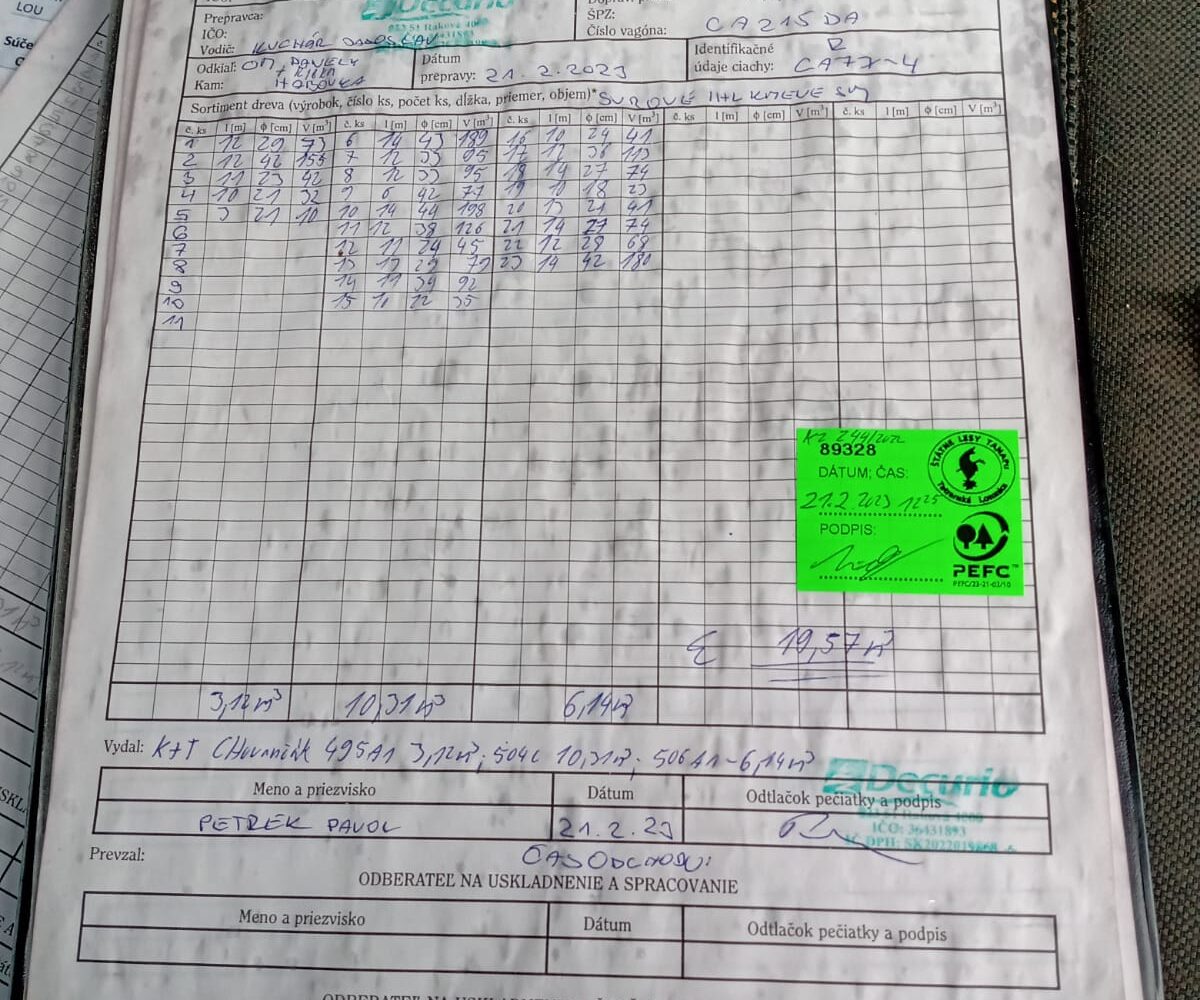 LOU
Súče
Prepravca:
Decurio
023 51 Raková 1000
ŠPZ:
IČO:
Číslo vagóna: CA215DA
Vodič: KUCHÁR
Identifikačné
údaje ciachy: CA77-4
Odkiaľ: OM,
Kam:
Dátum
prepravy: 21.2.2023
Sortiment dreva (výrobok, číslo ks, počet ks, dĺžka, priemer, objem)* SUROVÉ KMEVE
č. ks l [m] ϕ [cm] V [m³] č. ks l [m] ϕ [cm] V [m³] č. ks l [m] ϕ [cm] V [m³] č. ks l [m] ϕ [cm] V [m³] č. ks l [m] ϕ [cm] V [m³]
1 12 29 73 6 14 43 189 16 10 24 41
2 12 42 155 7 12 33 95 17 12 36 113
3 11 23 42 8 12 33 95 18 14 27 74
4 10 21 32 9 6 42 77 19 10 18 23
5 3 21 10 10 14 44 198 20 13 21 41
6 11 12 38 126 21 14 27 74
7 12 11 24 45 22 12 28 68
8 13 13 29 79 23 14 42 180
9 14 11 34 92
10 15 11 22 35
11
KZ 244/2022
89328
ŠTÁTNE LESY TANAPu
Tatranská Lomnica
DÁTUM; ČAS:
21.2.2023 12 25
PODPIS:
PEFC™
PEFC/23-21-03/10
Σ 19,57 m³
3,12 m³ 10,31 m³ 6,14 m³
Vydal: K+T 495A1 3,12 m³; 504C 10,31 m³; 506A1-6,14 m³
Decurio
Meno a priezvisko Dátum Odtlačok pečiatky a podpis
PETREK PAVOL 21.2.23
IČO: 36431893
IČ DPH: SK2022019868
Prevzal:
ČAS ODCHODU:
ODBERATEĽ NA USKLADNENIE A SPRACOVANIE
Meno a priezvisko Dátum Odtlačok pečiatky a podpis